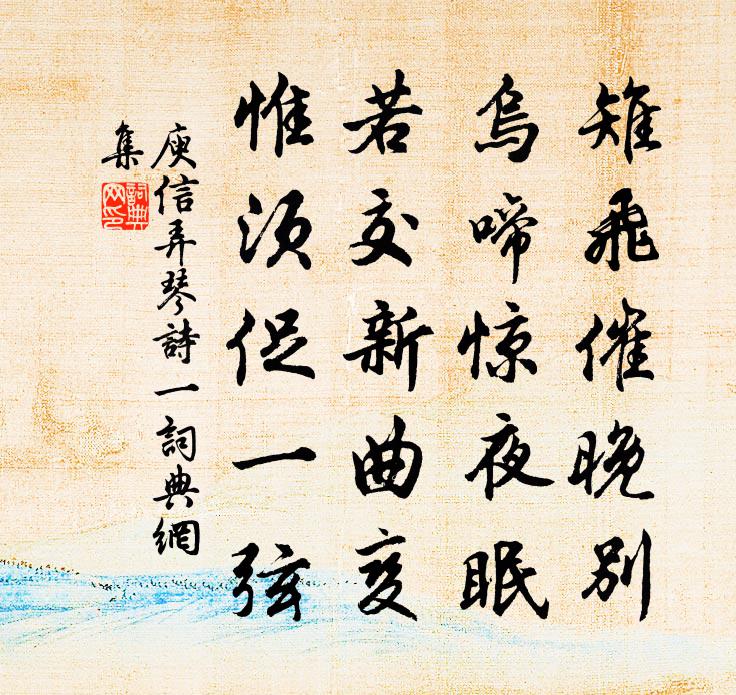 雉飛催晚别
烏啼惊夜眠
若交新曲变
惟须促一弦
庾信弄琴詩一詞典網
集
詞典网印